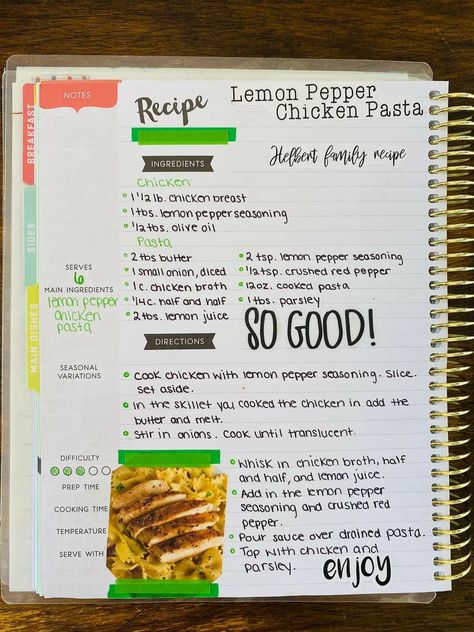 NOTES
Recipe
Lemon Pepper
Chicken Pasta
Helbert family recipe
BREAKFAST
SIDES
MAIN DISHES
INGREDIENTS
Chicken
1 1/2 lb. chicken breast
1 tbs. lemon pepper seasoning
1/2 tbs. olive oil
Pasta
2 tbs butter
1 small onion, diced
1 c. chicken broth
1/4 c. half and half
2 tbs. lemon juice
2 tsp. lemon pepper seasoning
1/2 tsp. crushed red pepper
12 oz. cooked pasta
1 tbs. parsley
SO GOOD!
SERVES
6
MAIN INGREDIENTS
lemon pepper
chicken
pasta
DIRECTIONS
SEASONAL
VARIATIONS
Cook chicken with lemon pepper seasoning. Slice.
set aside.
In the skillet you cooked the chicken in add the
butter and melt.
Stir in onions. Cook until translucent.
Whisk in chicken broth, half
and half, and lemon juice.
Add in the lemon pepper
seasoning and crushed red
pepper.
Pour sauce over drained pasta.
Top with chicken and
parsley.
enjoy
DIFFICULTY
PREP TIME
COOKING TIME
TEMPERATURE
SERVE WITH